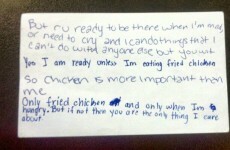 But r u ready to be there when I'm mad
or need to cry and icandothingsthat I
can't do with anyone else but you
Yes I am ready unless Im eating fried chicken
So chicken is more important than
me
Only fried chicken and only when Im
hangry. But if not then you are the only thing I care
about.